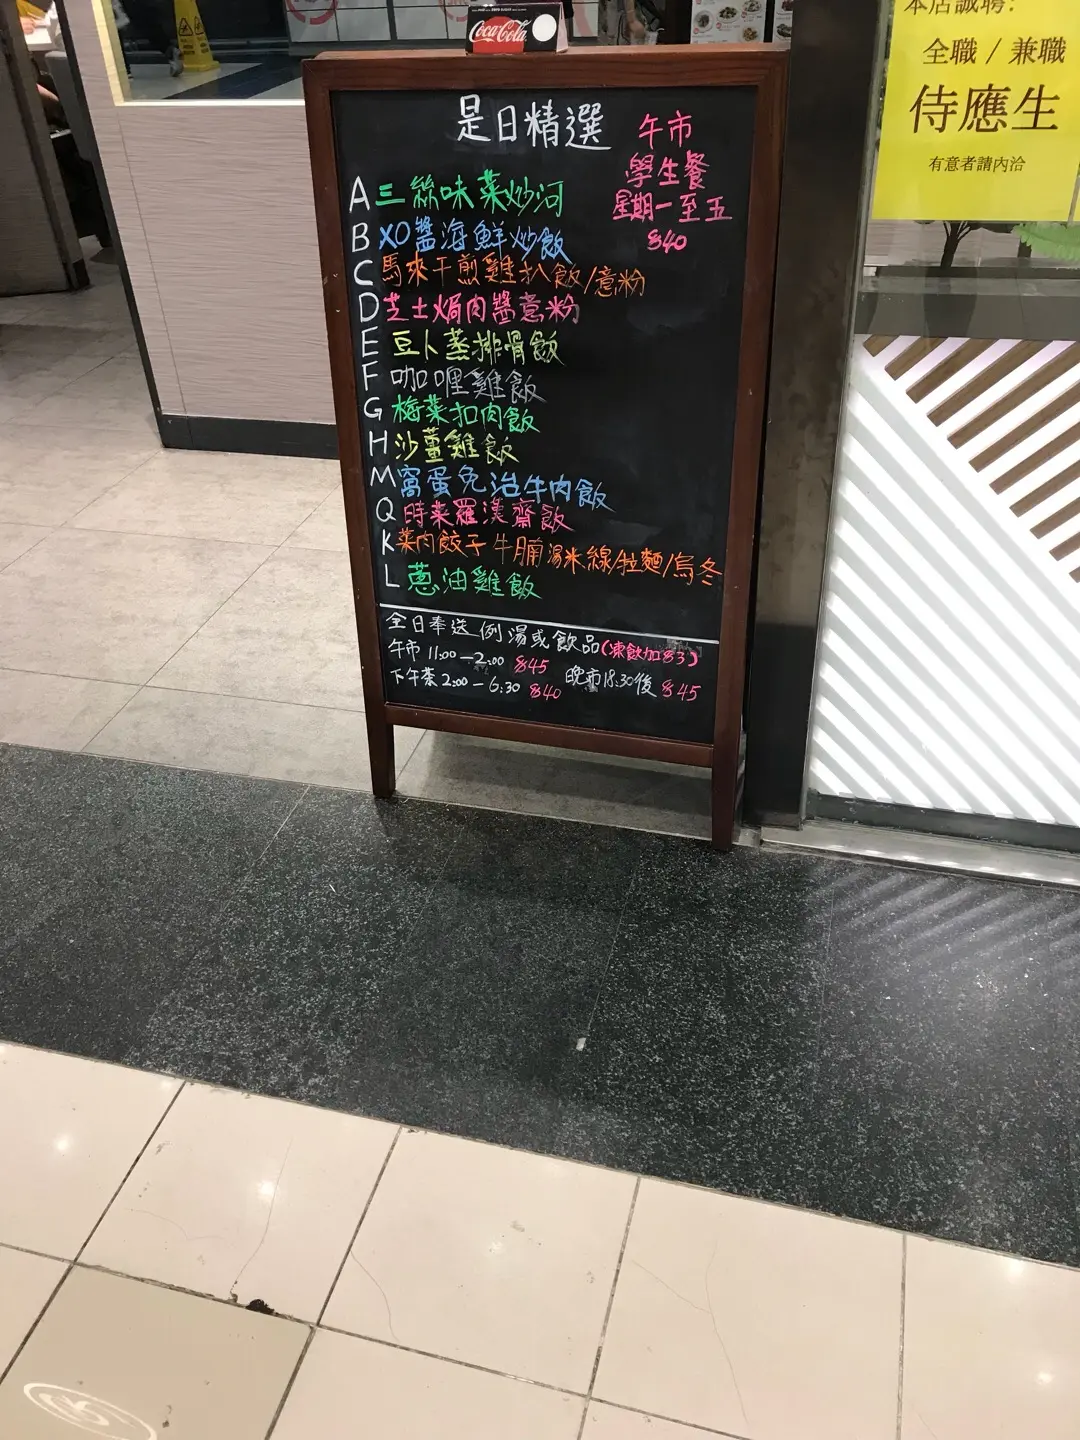 Coca-Cola
本店誠聘:
全職 / 兼職
侍應生
有意者請內洽
是日精選
午市
學生餐
星期一至五
$40
A 三絲味菜炒河
B XO醬海鮮炒飯
C 馬來干煎雞扒飯/意粉
D 芝士焗肉醬意粉
E 豆卜蒸排骨飯
F 咖喱雞飯
G 梅菜扣肉飯
H 沙薑雞飯
M 窩蛋免治牛肉飯
Q 時菜羅漢齋飯
K 菜肉餃子牛腩湯米線/拉麵/烏冬
L 蔥油雞飯
全日奉送例湯或飲品(凍飲加$3)
午市 11:00—2:00 $45
下午茶 2:00—6:30 $40 晚市18:30後 $45